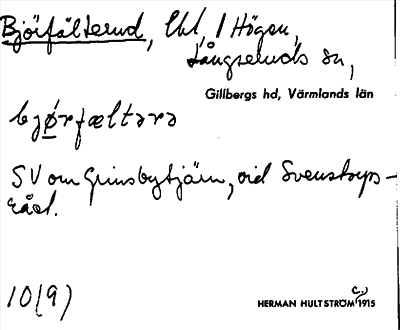 Björfälterud, Ekl, 1 Högen,
Långseruds sn,
Gillbergs hd, Värmlands län
bjørfæltərə
SV om Grinsbytjärn, vid Svensbyns-
råd.
10(9)
c.
HERMAN HULTSTRÖM 1915